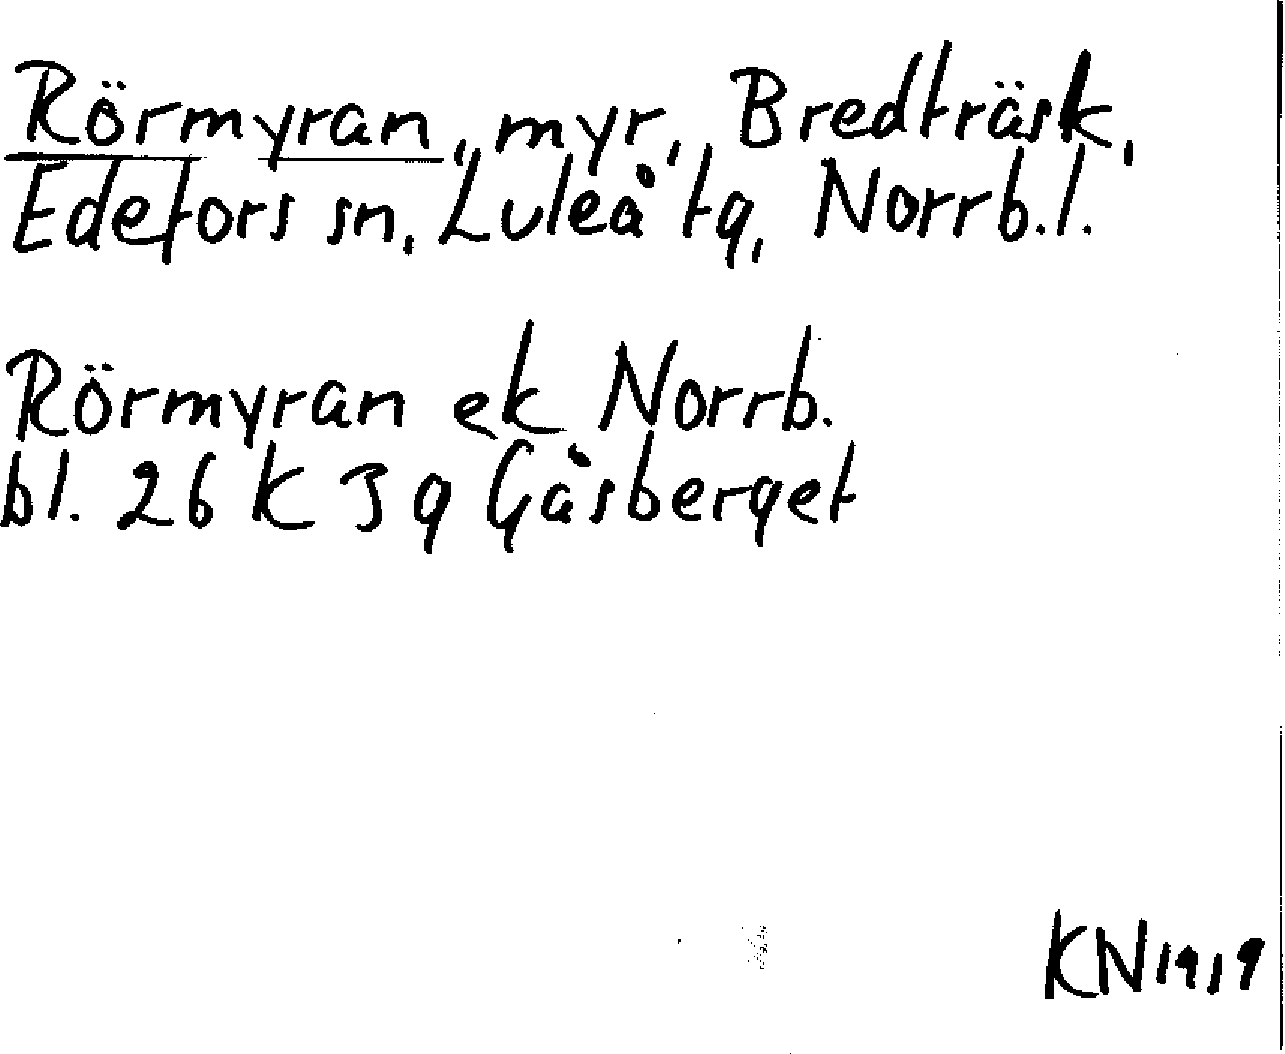 Rörmyran, myr, Bredträsk,
Edefors sn, Luleå tg, Norrb.l.
Rörmyran ek Norrb.
bl. 26 K 3 g Gåsberget
KN1919